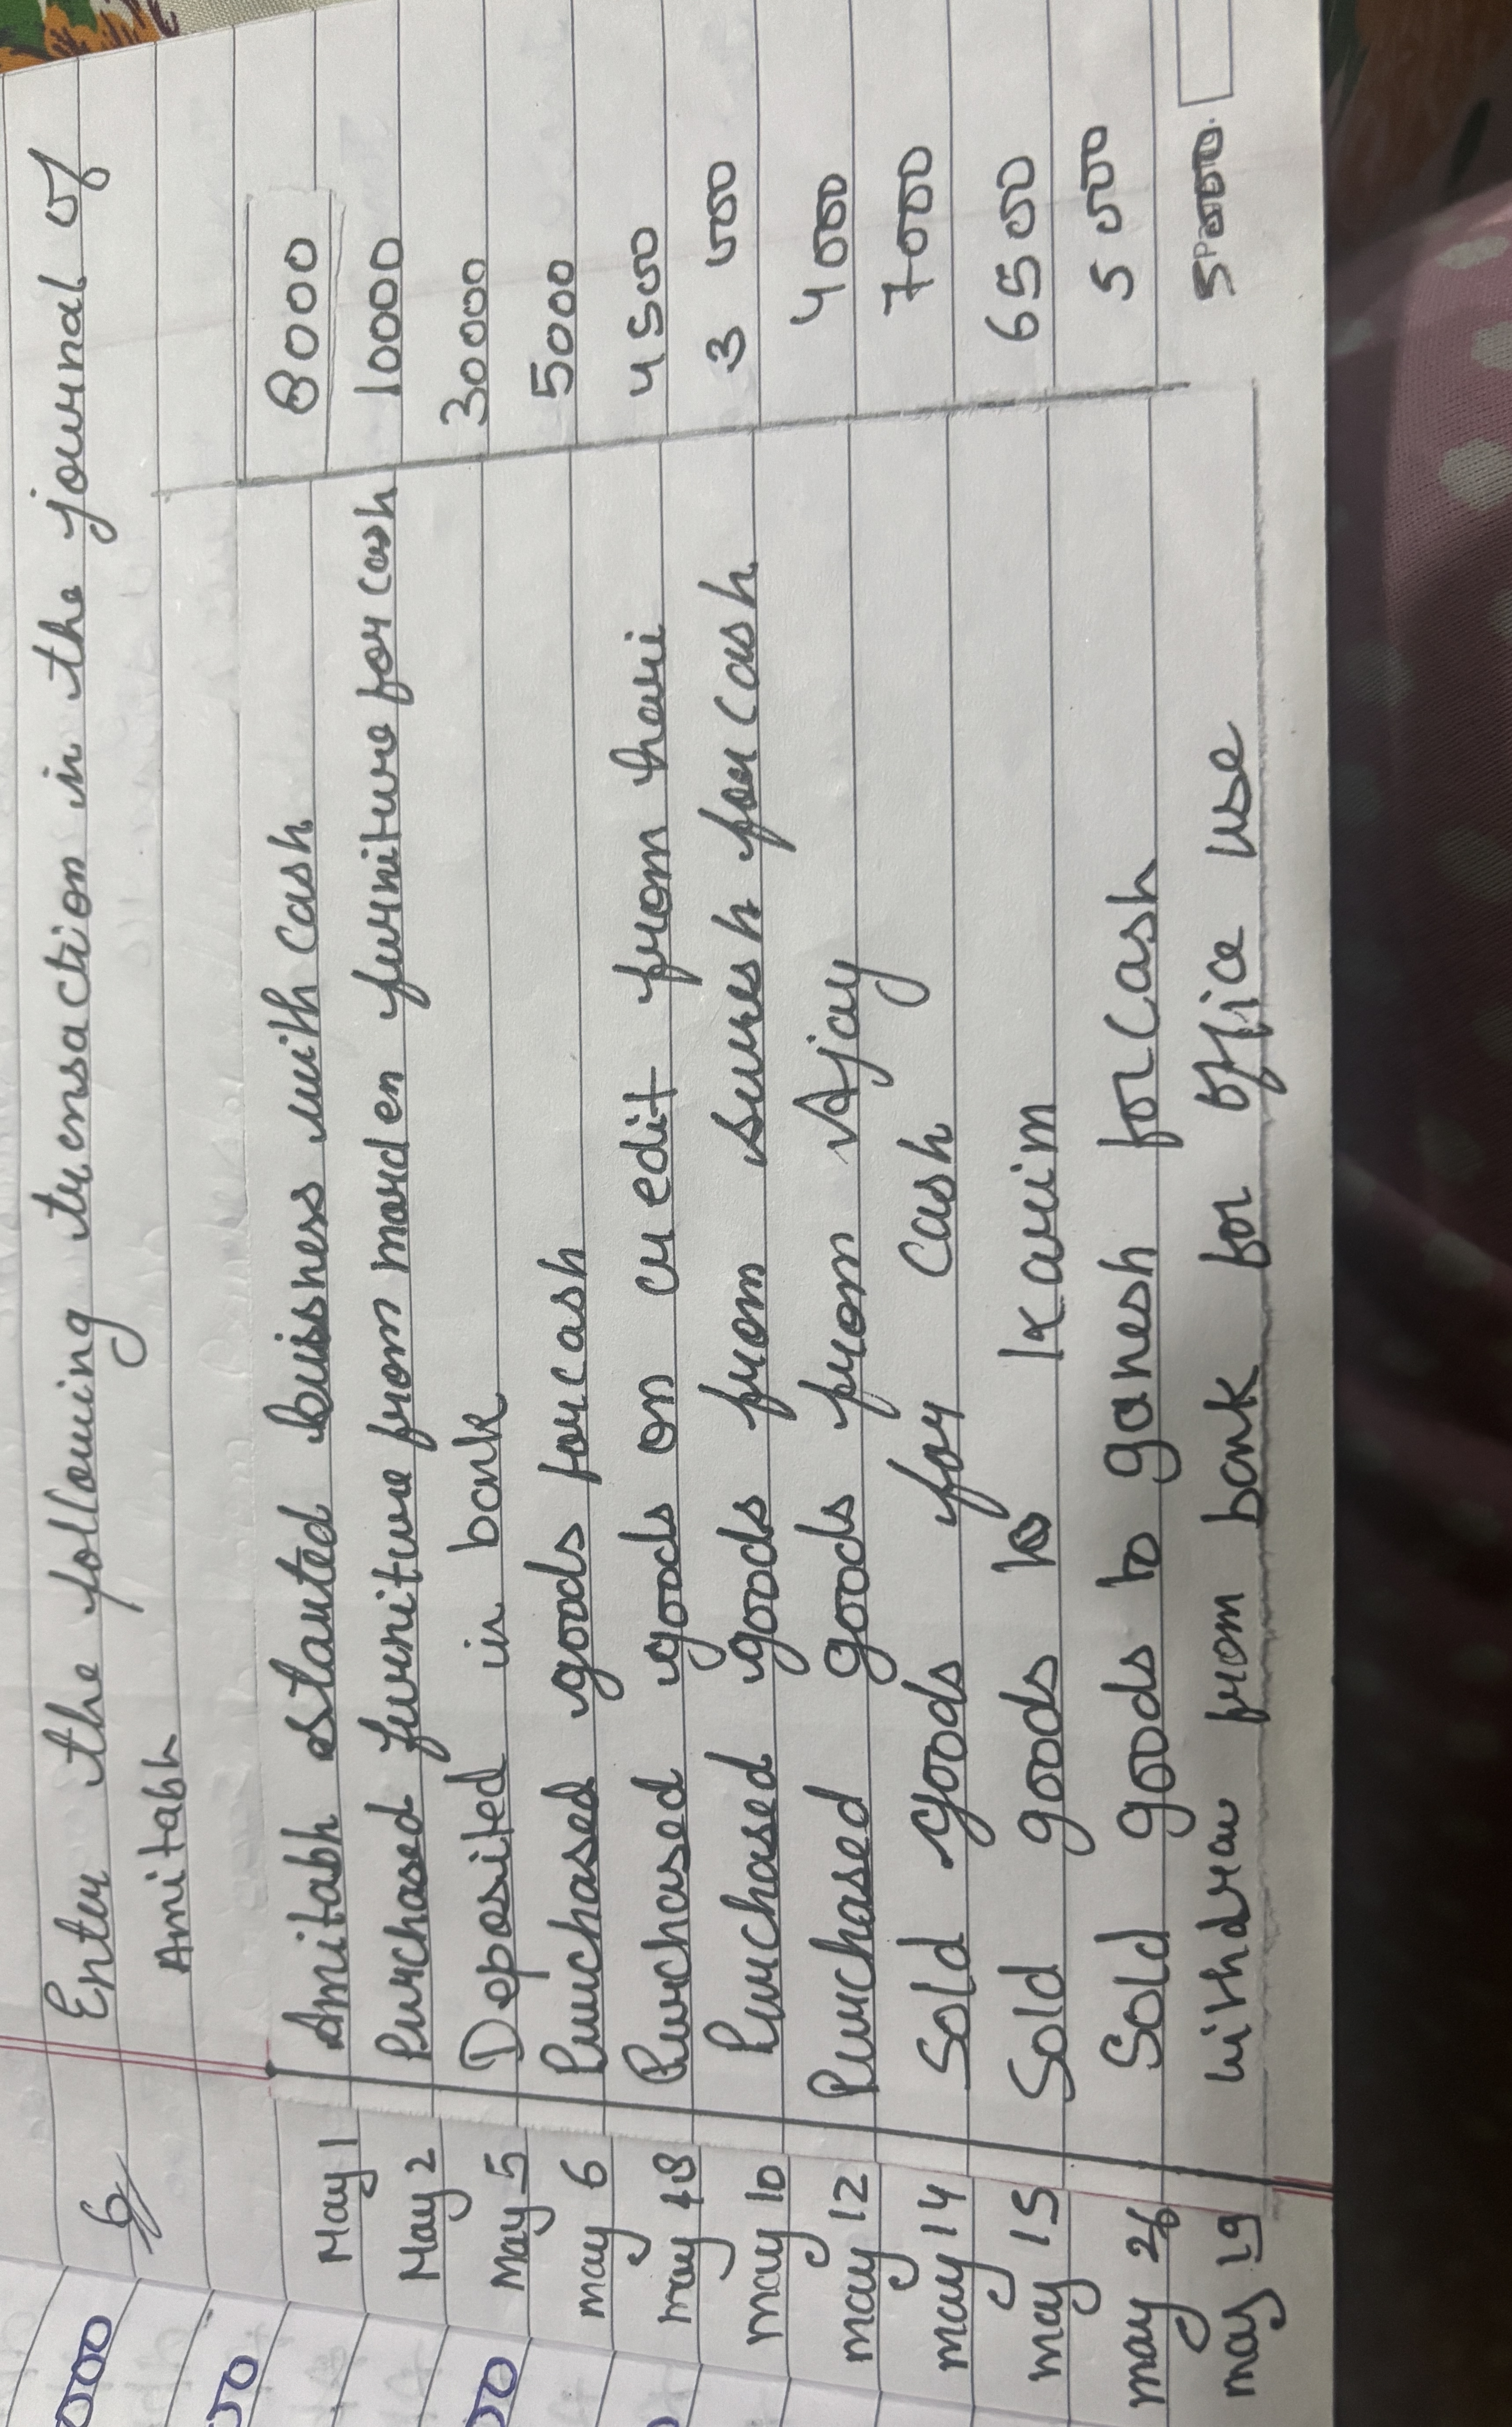 6 Enter the following transaction in the journal of
Amitabh
May 1 Amitabh started buissness with cash 8000
May 2 Purchased furniture from morden furniture for cash 10000
May 5 Deposited in bank 30000
may 6 Purchased goods for cash 5000
may 8 Purchased goods on credit from hari 4500
may 10 Purchased goods from suresh for cash 3000
may 12 Purchased goods from Ajay 4000
may 14 Sold goods for cash 7000
may 15 Sold goods to Karim 6500
may 26 Sold goods to ganesh for cash 5500
may 19 withdraw from bank for office use
000
00
00